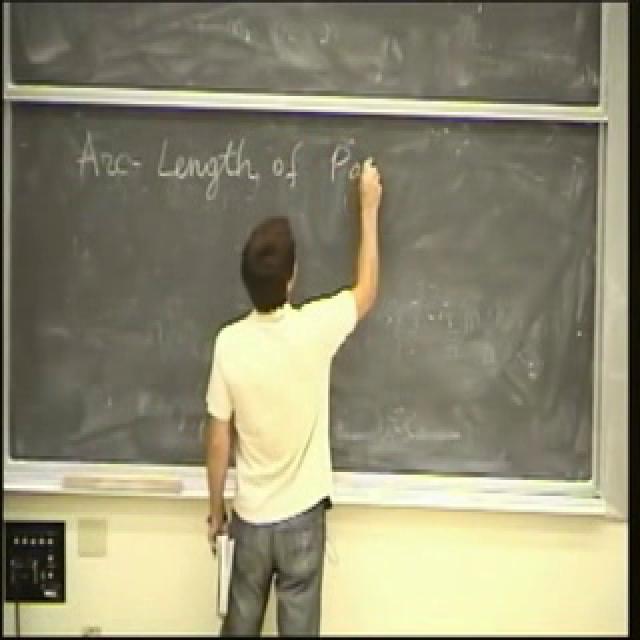 Arc-Length of Pa